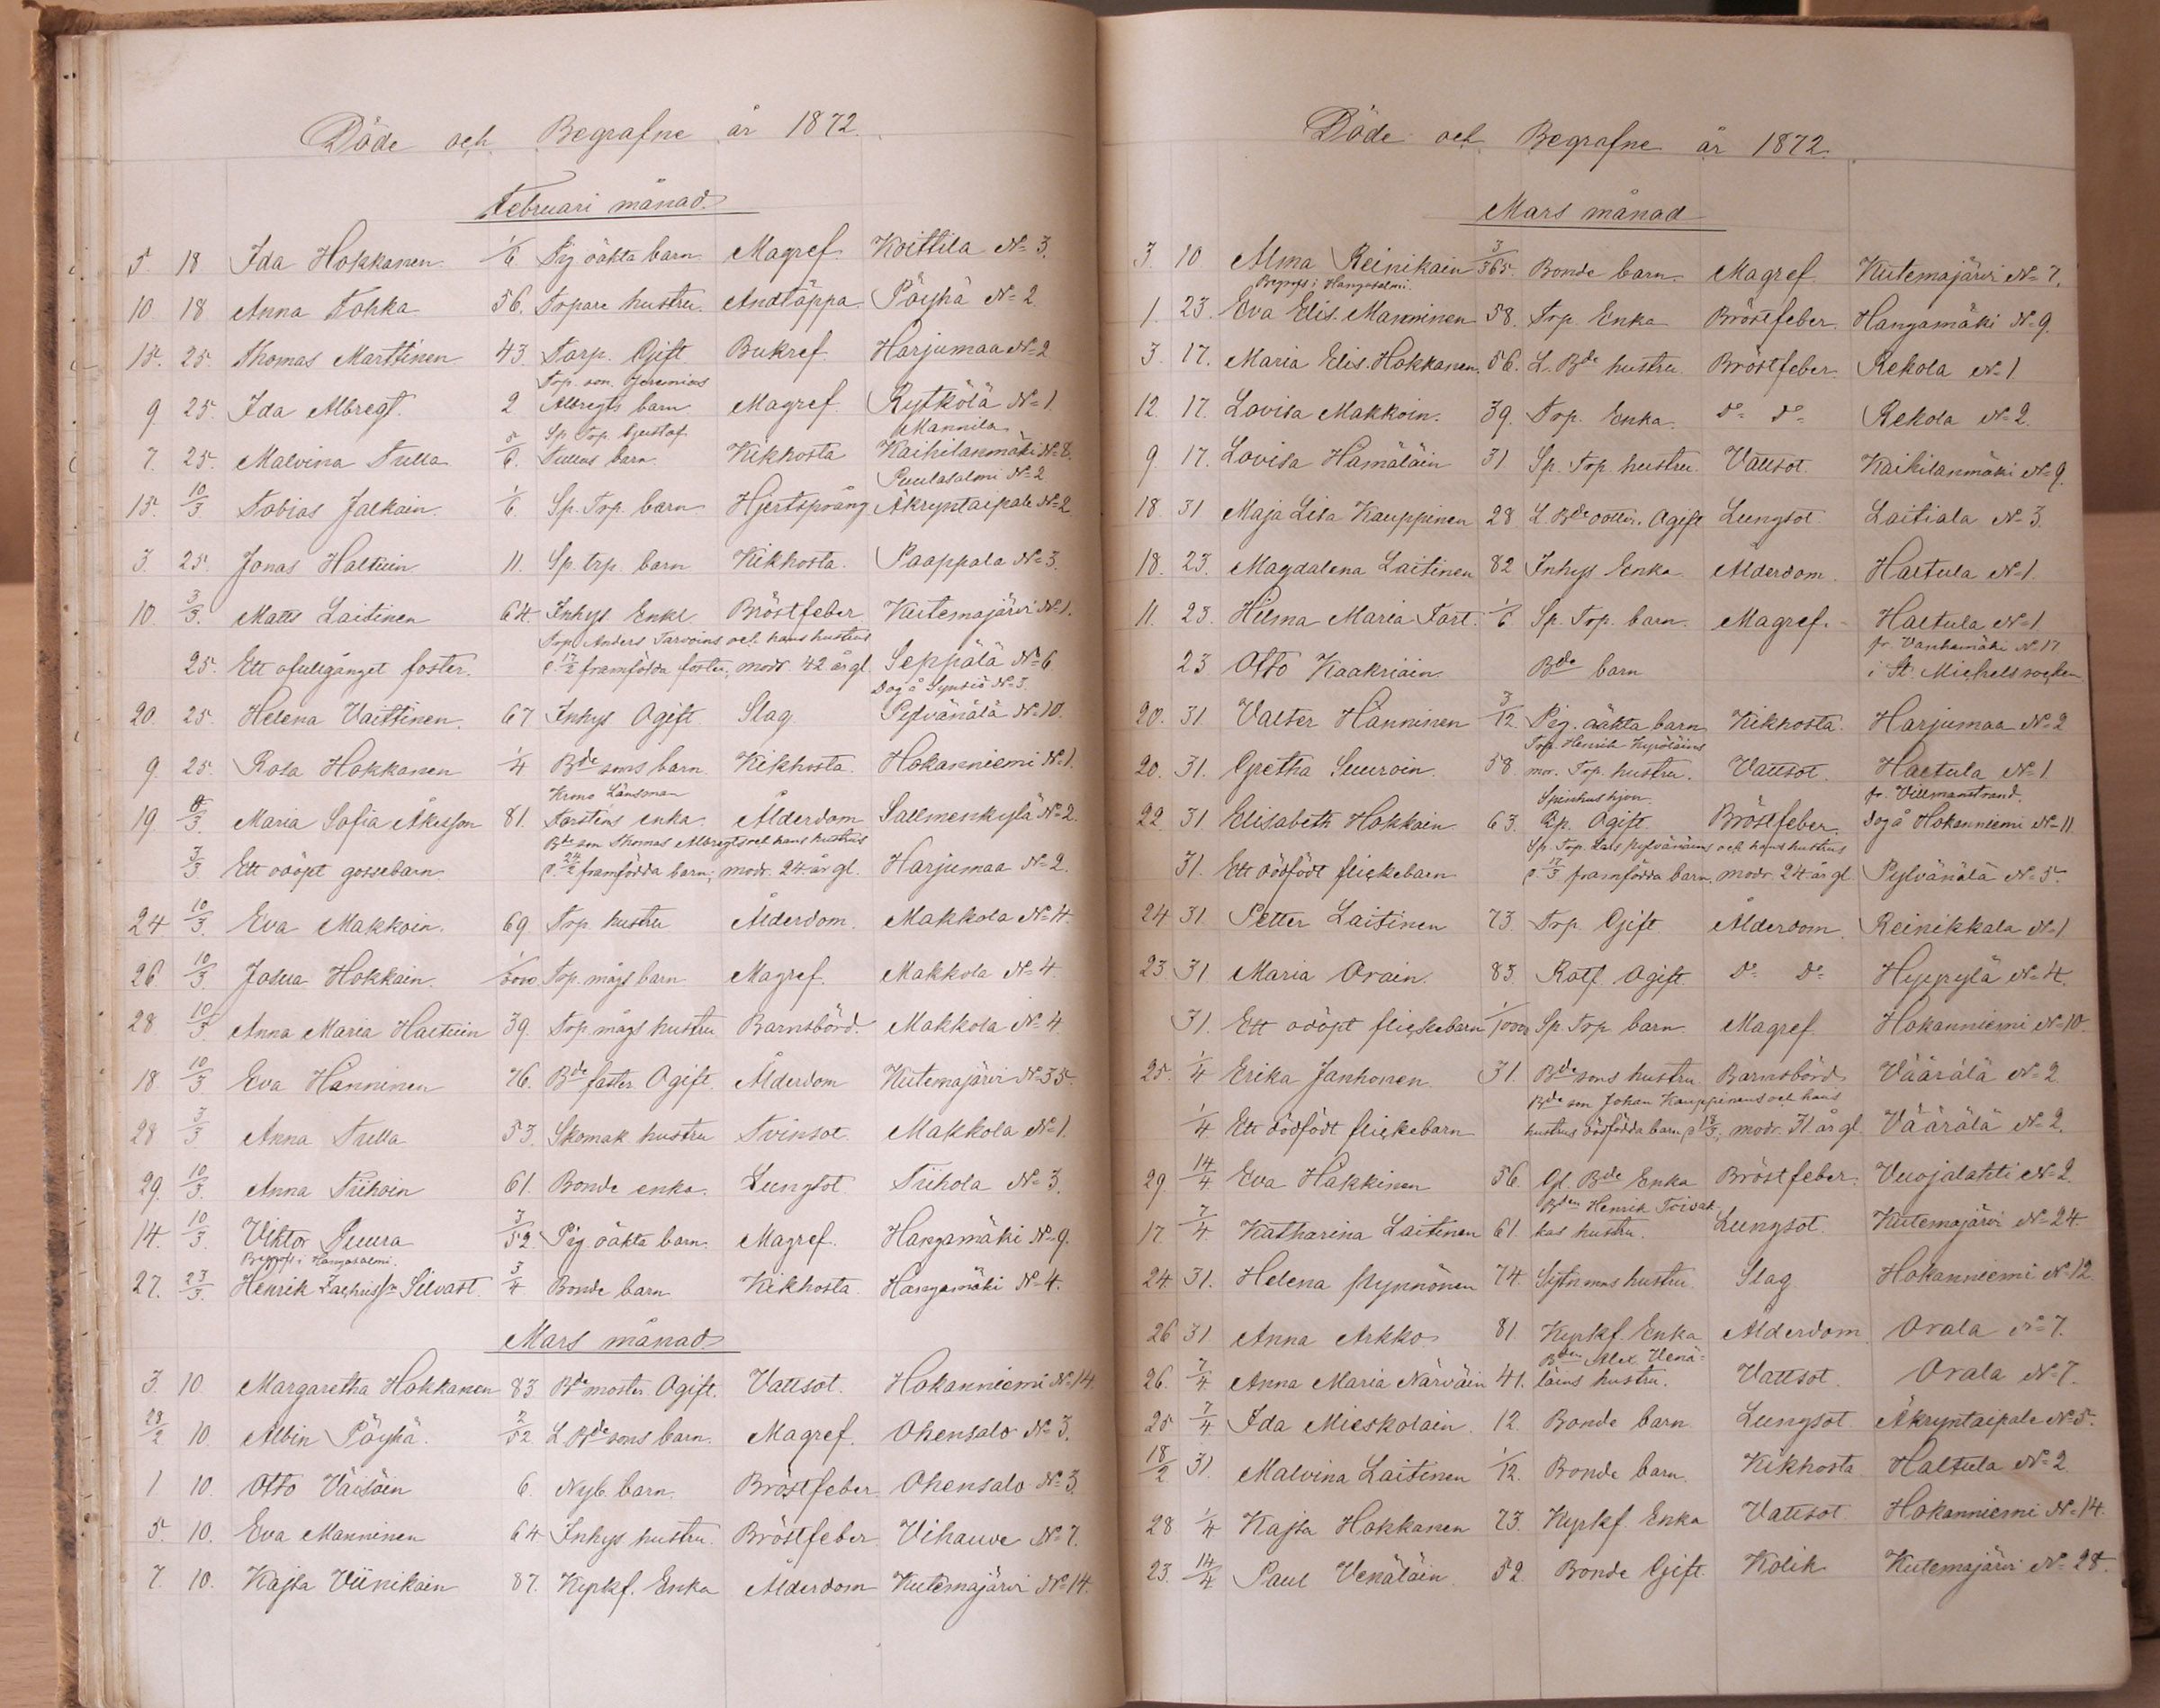 Döde och Begrafne år 1872.
Februari månad.
5. 18 Ida Hokkanen. 1/6 Pig oäkta barn Magref Koittila No 3.
10. 18. Anna Tohka 56. Torpare hustru. Andtäppa. Pöyhä No 2
15. 25. Thomas Marttinen 43. Torp. Gift Bukref Harjumaa No 2
Trp. son. Jeremias
9. 25. Ida Albregt. 2 Albregts barn Magref Rytkölä No 1.
Sp. Trp. Gustaf Mannila
7. 25. Malvina Tulla 5/6. Tullas barn. Kikhosta Kaihilanmäki No 8.
Puulasalmi No 2
15. 10/3. Tobias Jalkain. 1/6. Sp. Trp. barn Hjertsprång Äkryntaipale No 2.
3. 25. Jonas Haltuin 11. Sp. trp. barn Kikhosta. Paappala No 3.
10. 3/3. Matts Laitinen 64. Inhys Enkl Bröstfeber Kutemajärvi No 1.
Trp. Anders Tarvoins och hans hustrus
25. Ett ofullgånget foster. d. 17/2 framfödda foster, modr 42 år gl. Seppälä No 6
Dog å Synsiö No 3.
20. 25. Helena Vaittinen. 67 Inhys Ogift. Slag. Pylvänälä No 10.
9. 25. Rosa Hokkanen 1/4 Bde sons barn. Kikhosta. Hokanniemi No 1.
Krono Länsman
19. 9/3. Maria Sofia Åkesson 81. Forsténs enka. Ålderdom Sallmenkylä No 2.
Bde son Thomas Albregts och hans hustrus
3/3 Ett odöpt gossebarn. d. 24/2 framfödda barn; modr. 24 år gl. Harjumaa No 2.
24 10/3. Eva Makkoin. 69 Trp. hustru Ålderdom. Makkola No 4.
26. 10/3. Josua Hokkain. 1/2000. Trp. mågs barn Magref. Makkola No 4.
28 10/3. Anna Maria Haltuin 39. Trp. mågs hustru Barnsbörd. Makkola No 4
18. 10/3 Eva Hänninen 76. Bde faster Ogift. Ålderdom Kutemajärvi No 35.
28 3/3 Anna Tulla 53. Skomak hustru Tvinsot. Makkola No 1.
29. 10/3. Anna Tiihoin 61. Bonde enka. Lungsot. Tiihola No 3.
14. 10/3. Viktor Suura 3/52. Pig oäkta barn. Magref. Hangamäki No 9.
Begrafs i Hangasalmi.
27. 23/3. Henrik Zachrisson Silvast. 3/4 Bonde barn Kikhosta. Hangamäki No 4.
Mars månad.
3. 10. Margaretha Hokkanen 83 Bde moster Ogift. Vattsot. Hokanniemi No 14.
28/2 10 Albin Pöyhä. 2/52. L. Bde sons barn. Magref. Ohensalo No 3.
1. 10. Otto Väisäin 6. Nyb. barn. Bröstfeber. Ohensalo No 3.
5. 10. Eva Manninen 64 Inhys hustru. Bröstfeber Vihauve No 7.
7. 10. Kajsa Viinikain 87. Kyrkf. Enka Ålderdom Kutemajärvi No 14.
Döde och Begrafne år 1872.
Mars månad
3. 10 Alma Reinikain 3/365. Bonde barn. Magref Kutemajärvi No 7.
Begrafs i Hangasalmi.
1. 23. Eva Elis. Manninen 58. Trp. Enka Bröstfeber. Hangamäki No 9.
3. 17. Maria Elis. Hokkanen. 56. L. Bde hustru. Bröstfeber. Rekola No 1
12. 17. Lovisa Makkoin. 39. Trp. Enka. do do Rekola No 2.
9. 17. Lovisa Hämäläin 31 Sp. Trp. hustru. Vattsot. Kaihilanmäki No 9.
18. 31 Maja Lisa Kauppinen 28 L. Bde dotter. Ogift Lungsot. Laitiala No 3.
18. 23. Magdalena Laitinen 82 Inhys Enka Ålderdom. Haltula No 1.
11. 23. Hilma Maria Tart. 1/6 Sp. Trp. barn. Magref. Haltula No 1
fr. Vanhamäki No 17
23 Otto Kaakriain Bde barn i St. Michels socken
20. 31. Valter Hänninen 3/12. Pig. oäkta barn Kikhosta. Harjumaa No 2
Trp. Henrik Kyröläins
20. 31. Gretha Suuroin. 58 mor. Trp. hustru. Vattsot. Haltula No 1.
Spinhushjon. fr. Villmanstrand.
22 31 Elisabeth Hokkain 63. Ogift. Bröstfeber. dog å Hokanniemi No 11.
Sp. Trp. Lars Pylvänäins och hans hustrus
31. Ett dödfödt flickebarn d. 17/3 framfödda barn, modr. 24 år gl. Pylvänälä No 5.
24 31. Petter Laitinen 73. Trp. Gift Ålderdom. Reinikkala No 1.
23 31. Maria Orain. 83. Rotf Ogift. do do Hyyrylä No 4.
31. Ett odöpt flickebarn 1/1000 Sp. Trp barn. Magref. Hokanniemi No 10.
25. 1/4 Erika Janhonen 31. Bde sons hustru Barnsbörd. Väärälä No 2.
Bde son Johan Kauppinens och hans
1/4. Ett dödfödt flickebarn hustrus dödfödda barn, d 18/3, modr. 31 år gl. Väärälä No 2.
29. 14/4. Eva Häkkinen 56. Gl. Bde Enka Bröstfeber. Vuojalahti No 2.
Bden Henrik Toivak
17. 7/4. Katharina Laitinen 61. kas hustru. Lungsot. Kutemajärvi No 24.
24. 31. Helena Pynnönen 74. Sytnings hustru. Slag Hokanniemi No 12.
26 31. Anna Arkko 81. Kyrkf. Enka Ålderdom. Orala No 7.
Bden Alex. Venä-
26. 7/4. Anna Maria Närväin 41. läins hustru. Vattsot. Orala No 7.
25 7/4. Ida Mieskolain. 12. Bonde barn Lungsot. Äkryntaipale No 5.
18/2 31. Malvina Laitinen 1/12. Bonde barn. Kikhosta Haltula No 2.
28. 1/4 Kajsa Hokkanen 73. Kyrkf. Enka Vattsot. Hokanniemi No 14.
23. 14/4 Paul Venäläin. 52. Bonde Gift. Kolik Kutemajärvi No 28.